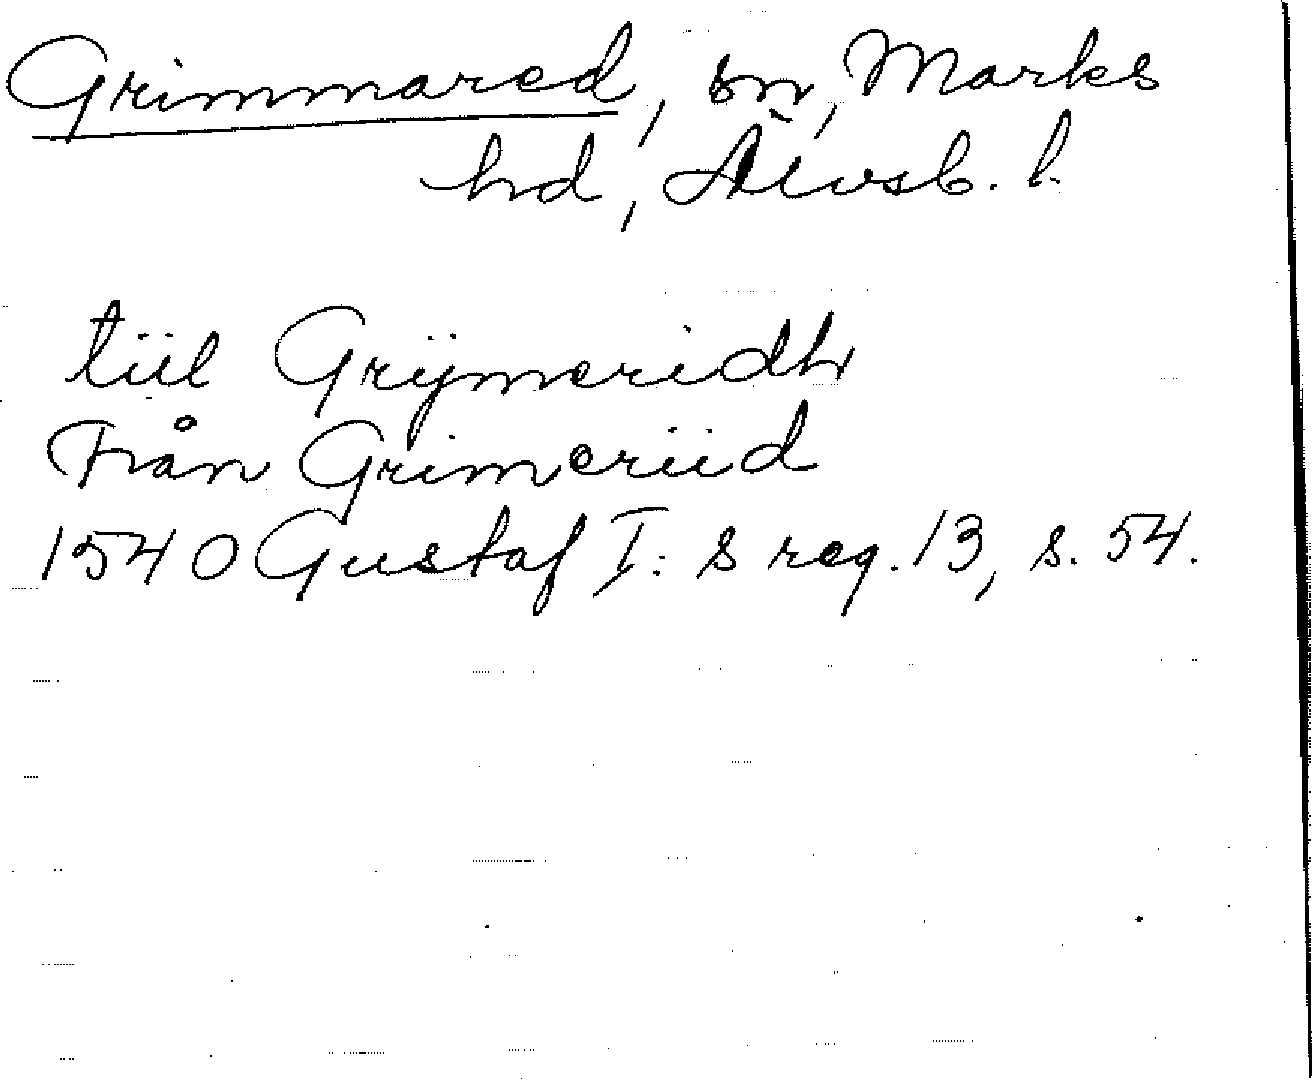 Grimmared, sn, Marks
hd, Älvsb. l.
tiil Grÿmeridh
Från Grimeriid
1540 Gustaf I:s reg. 13, s. 54.